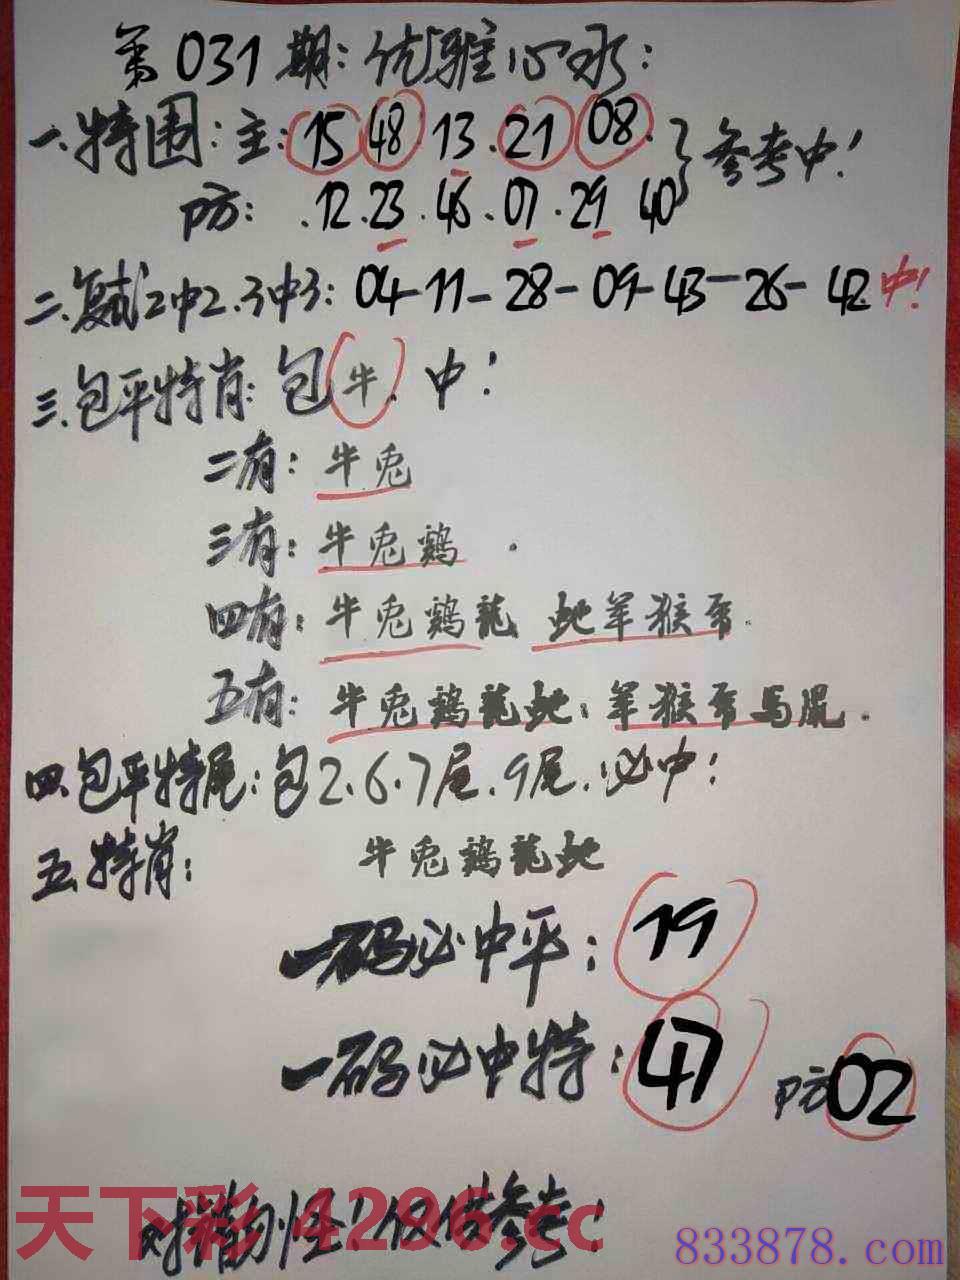 第031期:优雅心水:
一.特围:主:15 48·13·21 08·}参考中!
防:·12·23·46·07·29 40
二.复试2中2.3中3:04-11-28-09-43-26-42中!
三.包平特肖:包牛.中!
二有:牛兔
三有:牛兔鷄.
四有:牛兔鷄龍 蛇羊猴
五有:牛兔鷄龍蛇:羊猴馬鼠.
四.包平特尾:包2.6.7尾.9尾.必中!
五.特肖: 牛兔鷄龍蛇
一码必中平:19
一码必中特:47 防02
对错勿怪!仅供参考!
天下彩 4296.cc
833878.com